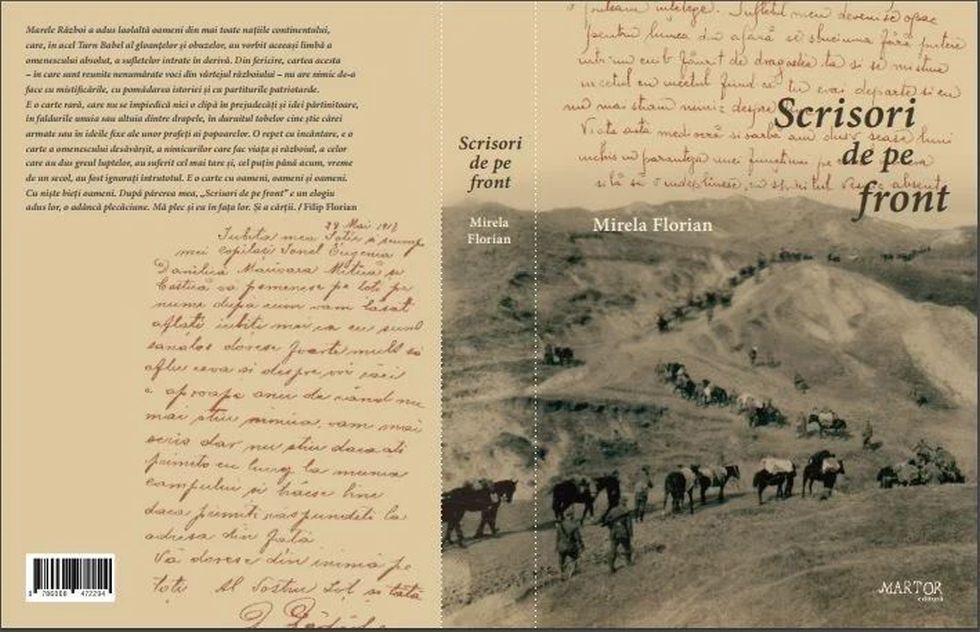 Marele Război a adus laolaltă oameni din mai toate națiile continentului,
care, în acel Turn Babel al gloanțelor și obuzelor, au vorbit aceeași limbă a
omenescului absolut, a sufletelor intrate în derivă. Din fericire, cartea acesta
– în care sunt reunite nenumărate voci din vârtejul războiului – nu are nimic de-a
face cu mistificările, cu pomădarea istoriei și cu partiturile patriotarde.
E o carte rară, care nu se împiedică nici o clipă în prejudecăți și idei părtinitoare,
în faldurile unuia sau altuia dintre drapele, în duruitul tobelor cine știe cărei
armate sau în ideile fixe ale unor profeți ai popoarelor. O repet cu încântare, e o
carte a omenescului desăvârșit, a nimicurilor care fac viața și războiul, a celor
care au dus greul luptelor, au suferit cel mai tare și, cel puțin până acum, vreme
de un secol, au fost ignorați întrutotul. E o carte cu oameni, oameni și oameni.
Cu niște bieți oameni. După părerea mea, „Scrisori de pe front” e un elogiu
adus lor, o adâncă plecăciune. Mă plec și eu în fața lor. Și a cărții. / Filip Florian
Mai 191
Iubita mea Sofie si scumpi
mei copilași Ionel Eugenia
Danilică Marioara Mitică si
Costică va pomenesc pe toti pe
nume după cum vam lasat
aflati iubiti mei ca eu sunt
sanatos doresc foarte mult să
aflu ceva si despre voi caci
e aproape anu de când nu
mai stiu nimica, vam mai
scris dar nu stiu daca ati
primit cu lung la munca
campului si
daca primiti raspundeti la
adresa din fată
Vă doresc din inimă pe
toti Al Vostru Sot si tată
9 786068 472294
Scrisori
de pe
front
Mirela
Florian
întelege. Sufletul meu deveni se opac
pentru lumea din afară se sbuciuma fără putere
de dragostea ta si se mistuia
incetul cu incetul fiind ca tu erai departe si eu
nu mai stiam nimic despre
Viata asta mediocră si oarbă am dus-o sease luni
inchis in paranteza unei functiuni pe
si la să o indeplinesc, cu spiritul vesnic absent
Scrisori
de pe
front
Mirela Florian
MARTOR
editură